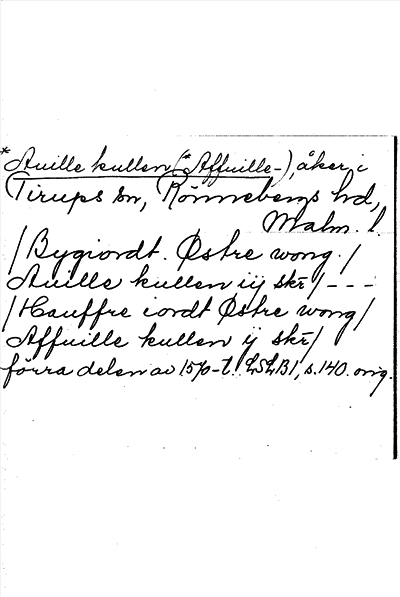 *Auille kullen (*Affuille-), åker i
Tirups sn, Rönnebergs hd,
Malm. l.
/Bygiordt. Østre wong./
Auille kullen iij skr/ - - -
/Hauffre iordt Østre wong/
Affuille kullen ij skr/
förra delen av 1570-t. LSLB1, s. 140. orig.